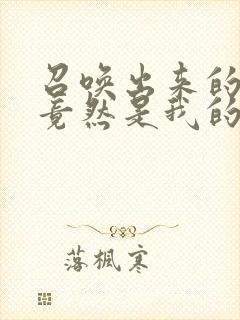 召唤出来的
竟然是我的
落枫寒